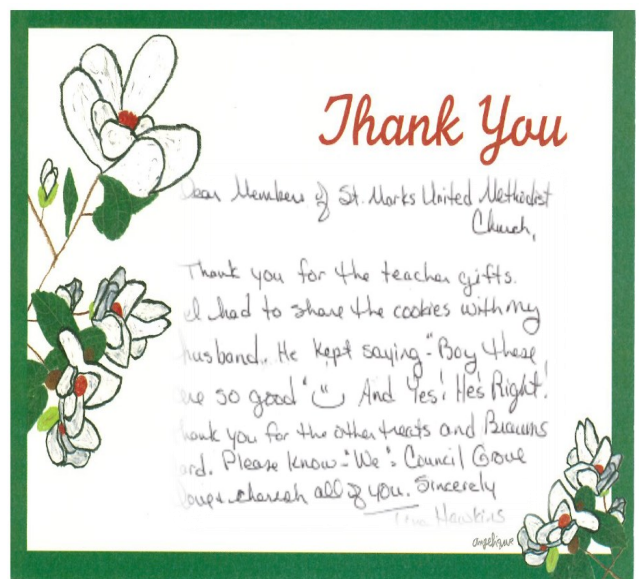 Thank You
Dear Members of St. Marks United Methodist
Church,
Thank you for the teacher gifts.
I had to share the cookies with my
husband.. He kept saying-"Boy these
are so good" And Yes! He's Right!
hank you for the other treats and Braums
ard. Please know-"We": Council Grove
love & cherish all of you. Sincerely
Hawkins
angelique